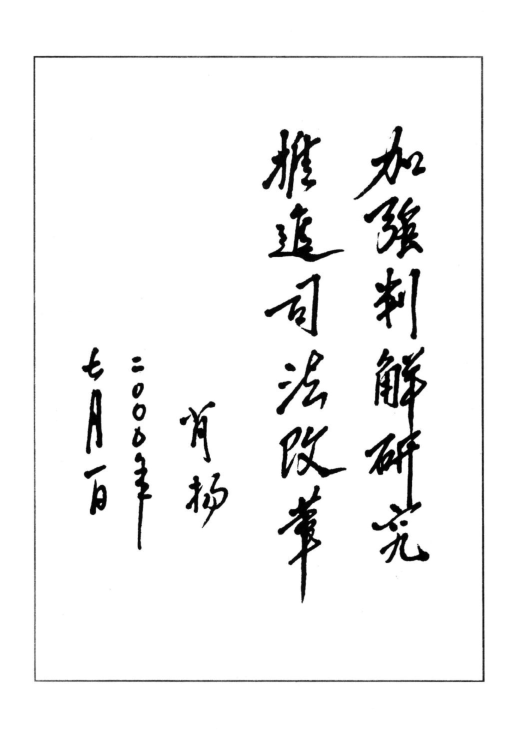 加強判解研究
推進司法改革
肖扬
二〇〇〇年
七月一日